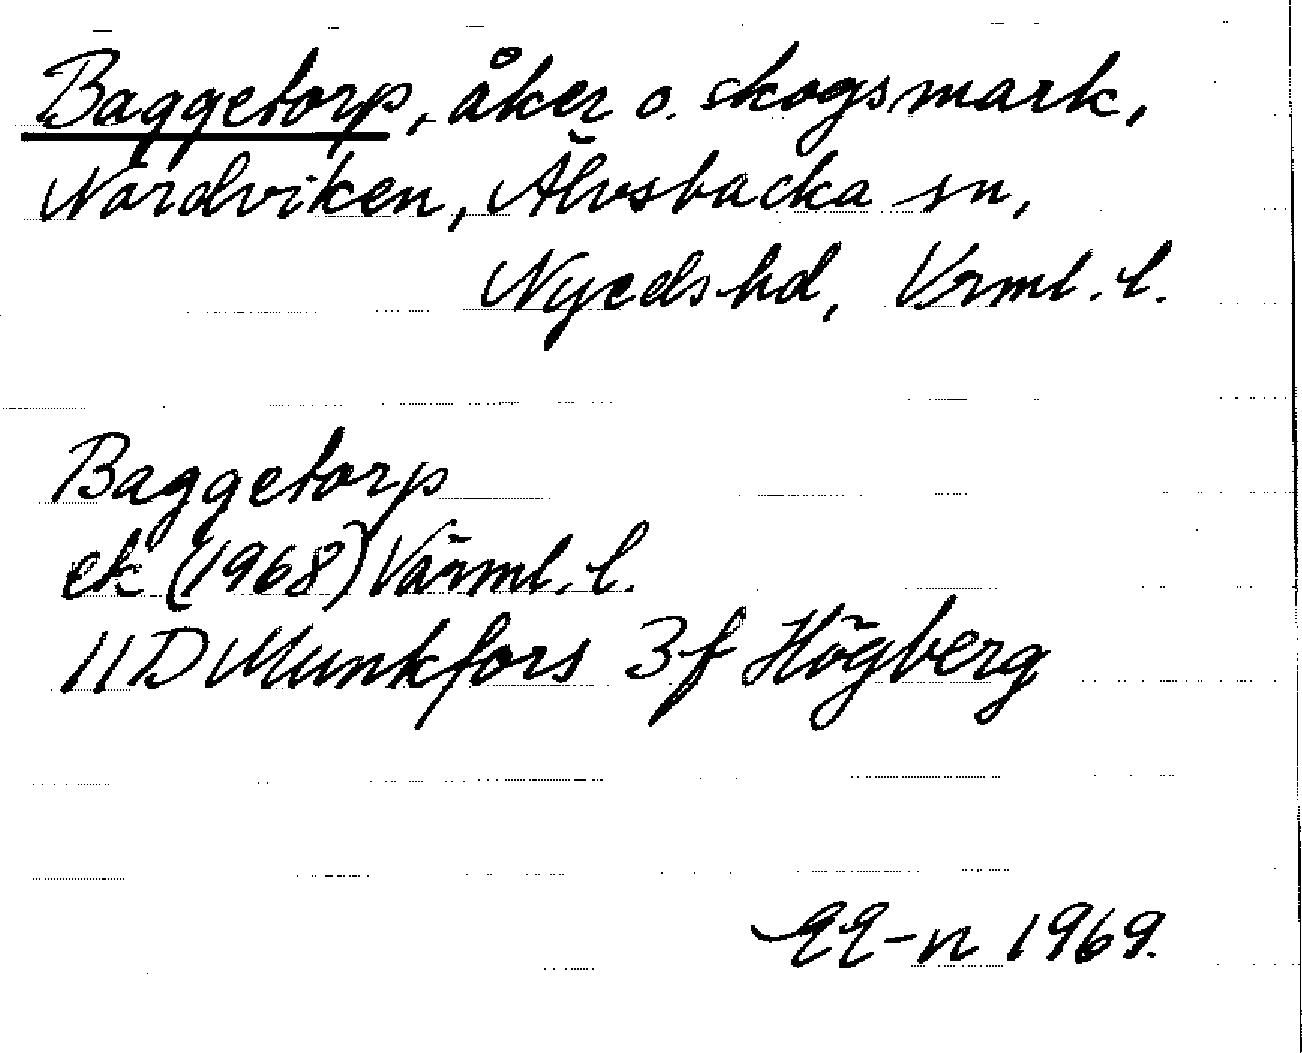 Baggetorp, åker o. skogsmark,
Nordviken, Älvsbacka sn,
Nyeds hd, Vrml. l.
Baggetorp
ek (1968) Värml. l.
11D Munkfors 3f Högberg
EE-n 1969.